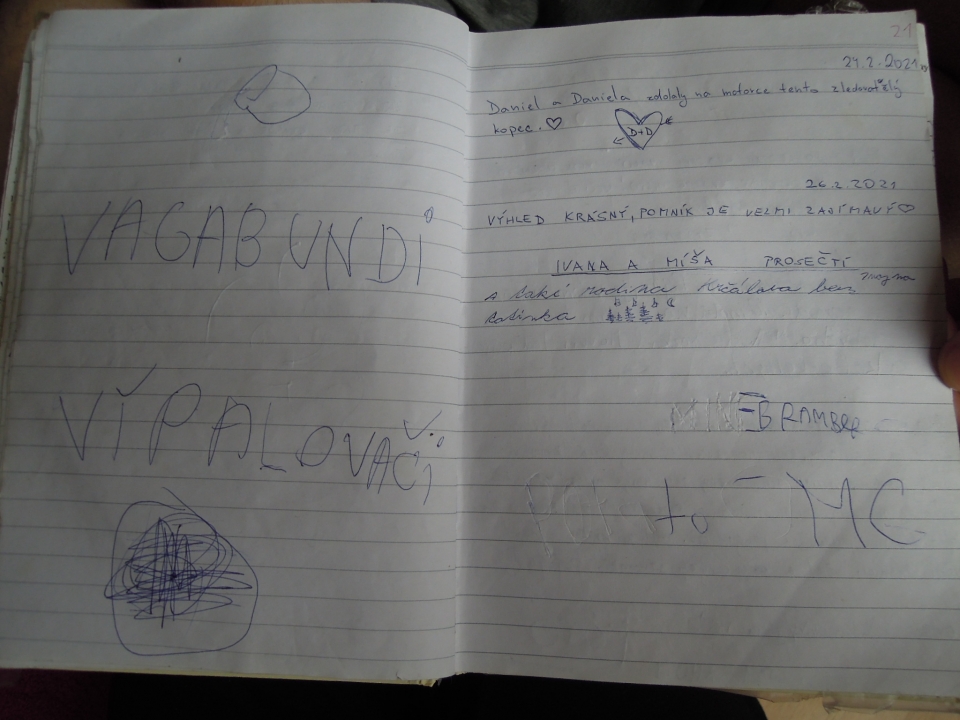 VAGABUNDI
VÍPALOVAČI
21
24.2.2021
Daniel a Daniela zdolaly na motorce tento zledovatělý
kopec. ♡
D+D
26.2.2021
VÝHLED KRÁSNÝ, POMNÍK JE VELMI ZAJÍMAVÝ ♡
IVANA A MÍŠA PROSEČTÍ
a také rodina Krčálova bez
tatínka
BRAMBR
to MC